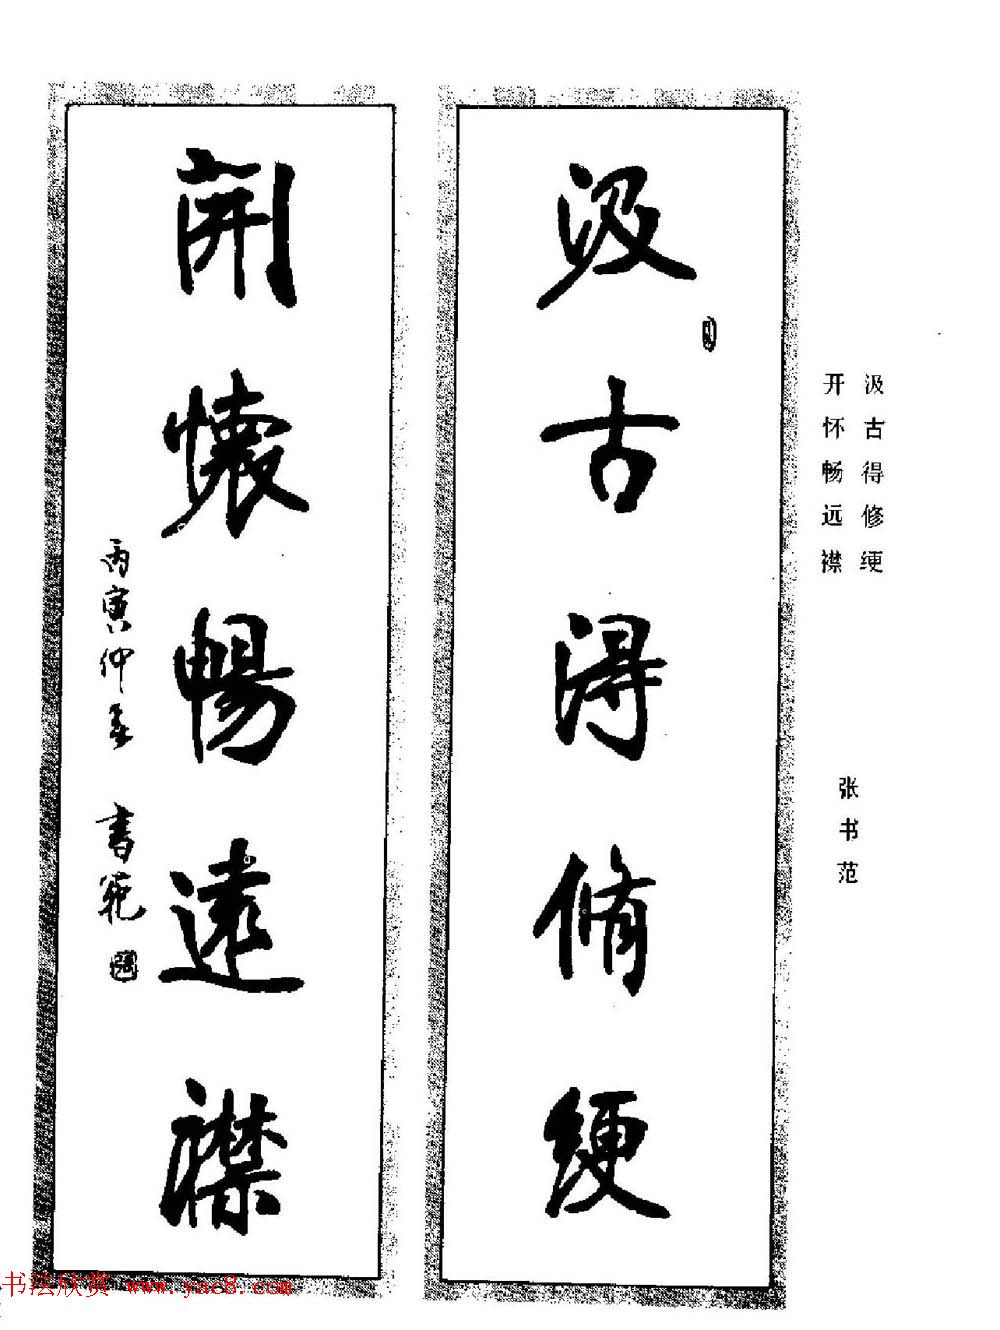 汲古得修绠
开怀畅远襟
张书范
汲古得脩綆
開懷暢遠襟
丙寅仲冬 書範
书法欣赏 www.yac8.com